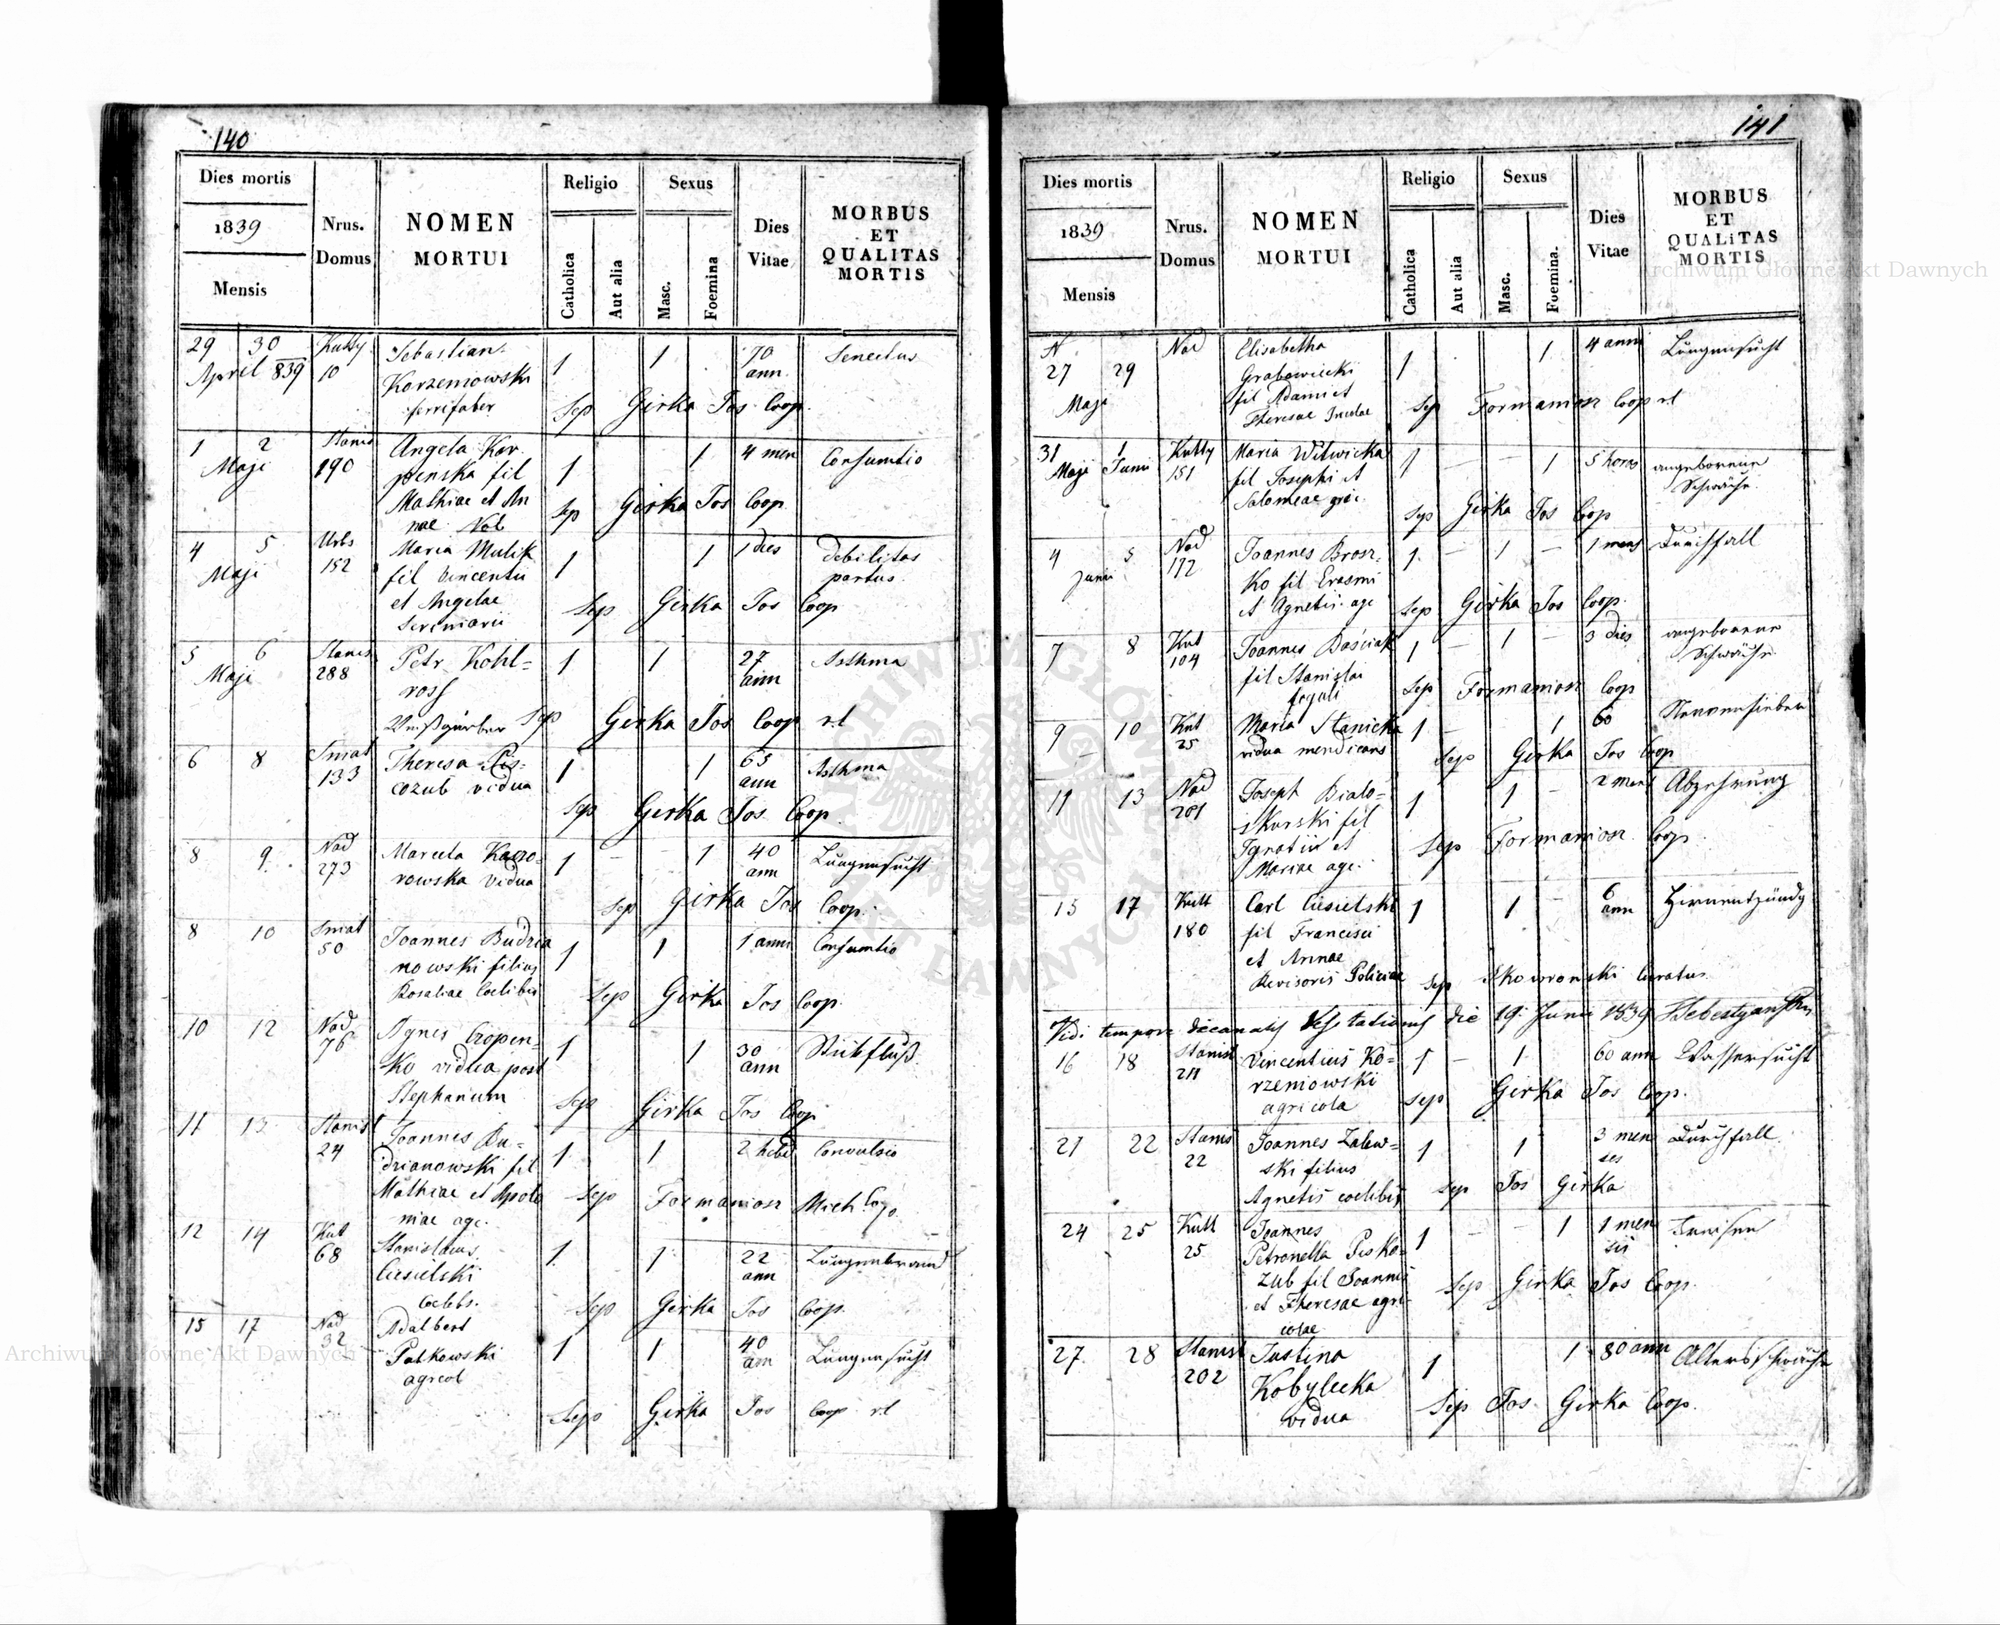 140
Dies mortis
1839
Mensis
Nrus.
Domus
NOMEN
MORTUI
Religio
Catholica
Aut alia
Sexus
Masc.
Foemina
Dies
Vitae
MORBUS
ET
QUALITAS
MORTIS
29 30 Kutty Sebastian 1 1 70 Senectus
April 839 10 Korzeniowski ann.
ferrifaber Sep Girka Jos Coop
1 2 Stanis Angela Kor 1 1 4 men Consumtio
Maji 190 penska fil
Mathiae et An Sep Girka Jos Coop
nae Nob
4 5 Urbs Maria Mulik 1 1 1 dies debilitas
Maji 152 fil Vincentii partus
et Angelae Sep Girka Jos Coop
5 6 Stanis Petr Kohl= 1 1 27 Asthma
Maji 288 ross ann
Weißgärber Sep Girka Jos Coop rl
6 8 Smat Theresa Pis= 1 1 65 Asthma
133 cozub vidua ann
Sep Girka Jos Coop.
8 9 Nad Marcela 1 1 40 Lungensucht
273 rowska vidua ann
Sep Girka Jos Coop.
8 10 Smat Joannes Budzia 1 1 1 anni Consumtio
50 nowski filius
Rosaliae Coelibis Sep Girka Jos Coop.
10 12 Nad Agnes Cropen= 1 1 30 Stickfluß
76 ko vidua post ann
Stephanum Sep Girka Jos Coop
11 13 Stanis Joannes Bu= 1 1 2 hebd Convulsio
24 drianowski fil
Mathiae et Apolo Sep Formaniosz Mich Coop.
niae agr.
12 14 Kut Stanislaus 1 1 22 Lungenbrand
68 Ciesielski ann
Coelebs. Sep Girka Jos Coop.
15 17 Nad Adalbert 1 1 40 Lungensucht
32 Patkowski ann
agricol
Sep Girka Jos Coop rl
141
Dies mortis
1839
Mensis
Nrus.
Domus
NOMEN
MORTUI
Religio
Catholica
Aut alia
Sexus
Masc.
Foemina.
Dies
Vitae
MORBUS
ET
QUALiTAS
MORTIS
N Nad Elisabetha 1 1 4 anni Lungensucht
27 29 Grabowiecki
Maji fil Adami et Sep Formaniosz Coop rl
Theresae Incolae
31 1 Kutty Maria Witwicka 1 1 5 horas angeborene
Maji Juni 151 fil Josephi et Schwäche
Salomeae Sep Girka Jos Coop
4 5 Nad Joannes Brosz 1 1 1 mens Durchfall
Juni 172 ko fil Erasmi
et Agnetis agr Sep Girka Jos Coop.
7 8 Kut Joannes Basciak 1 1 3 dies angeborene
104 fil Stanislai Schwäche
Sep Formaniosz Coop
9 10 Kut Maria Stanicka 1 1 60 Nervenfieber
25 vidua mendicans Sep Girka Jos Coop
11 13 Nad Joseph Bialo= 1 1 2 mens Abzehrung
201 skurski fil
Ignatii et Sep Formaniosz Coop.
Mariae agr.
15 17 Kutt Carl Ciesielski 1 1 6 Hirnentzündg
180 fil Francisci ann
et Annae
Revisoris Policiae Sep Skowronski Curatus
Vidi tempore decanalis Visitationis die 19 Junii 1839
16 18 Stanis Vincentius Ko= 1 1 60 ann Wassersucht
211 rzeniowski
agricola Sep Girka Jos Coop.
21 22 Stanis Joannes Zalew= 1 1 3 men Durchfall
22 ski filius ses
Agnetis coelibis Sep Jos Girka
24 25 Kutt Joannes 1 1 1 men Freisen
25 Petronella Pisko= sis
zub fil Joannis Sep Girka Jos Coop.
et Theresae agri
colae
27. 28 Stanis Justina 1 1 80 ann Altersschwäche
202 Kobylecka
vidua Sep Jos Girka Coop.
Archiwum Główne Akt Dawnych
Archiwum Główne Akt Dawnych
ARCHIWUM GŁÓWNE AKT DAWNYCH